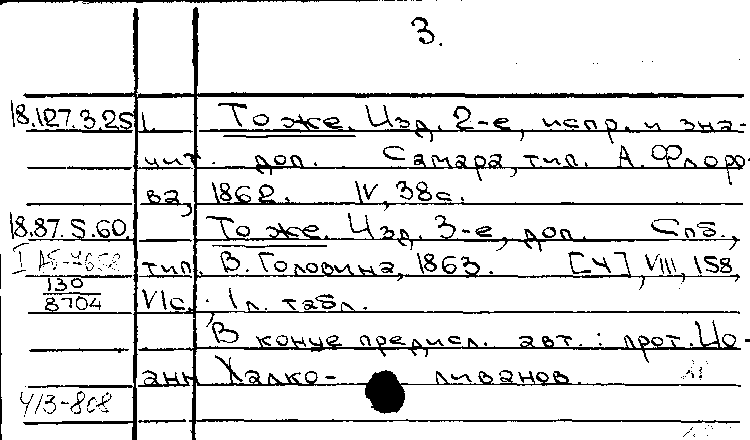 3.
18.127.3.251. То же. Изд. 2-е, испр. и зна-
чит. доп. Самара, тип. А. Флоро-
ва, 1862. IV, 38с.
18.87.5.60. То же. Изд. 3-е, доп. Спб.,
тип. В. Головина, 1863. [4], VIII, 158,
130
8704 VIс.; 1л. табл.
В конце предисл. авт.: прот. Ио-
анн Халколиванов.
Ч13-808